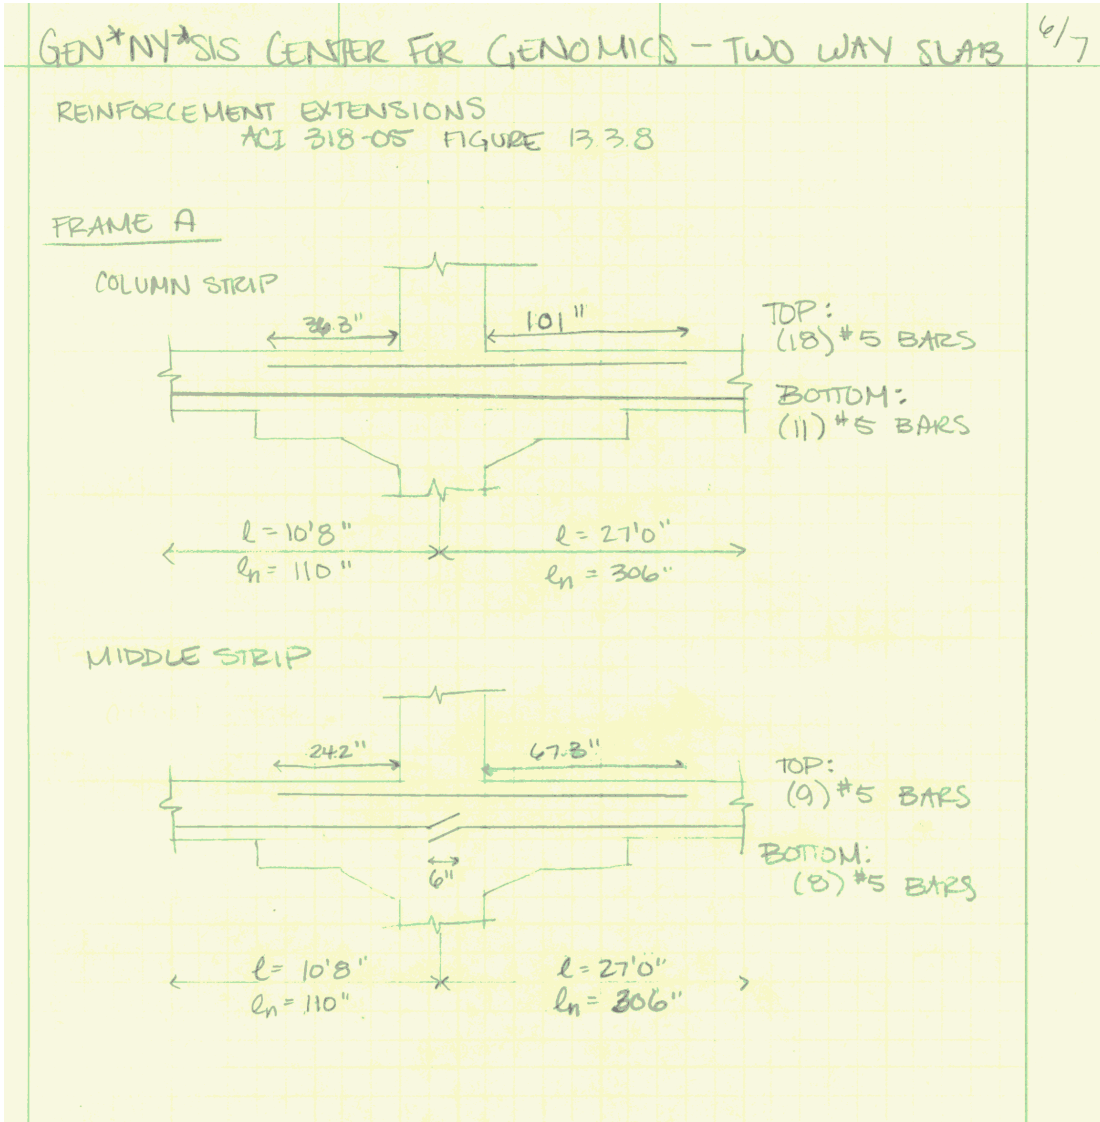 GEN*NY*SIS CENTER FOR GENOMICS - TWO WAY SLAB 6/7
REINFORCEMENT EXTENSIONS
ACI 318-05 FIGURE 13.3.8
FRAME A
COLUMN STRIP
36.3" 101"
TOP:
(18) #5 BARS
BOTTOM:
(11) #5 BARS
l = 10'8" l = 27'0"
ln = 110" ln = 306"
MIDDLE STRIP
24.2" 67.3"
TOP:
(9) #5 BARS
6"
BOTTOM:
(8) #5 BARS
l = 10'8" l = 27'0"
ln = 110" ln = 306"